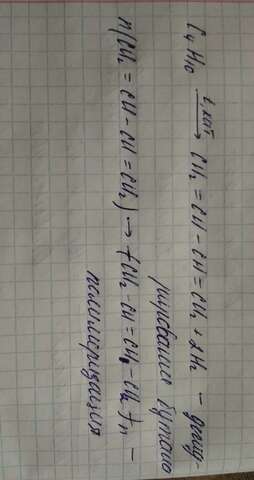 C₄H₁₀ —t, кат→ CH₂ = CH - CH = CH₂ + 2H₂ – дегид-
рирование бутана
n(CH₂ = CH - CH = CH₂) → (CH₂ - CH = CH - CH₂)ₙ –
полимеризация